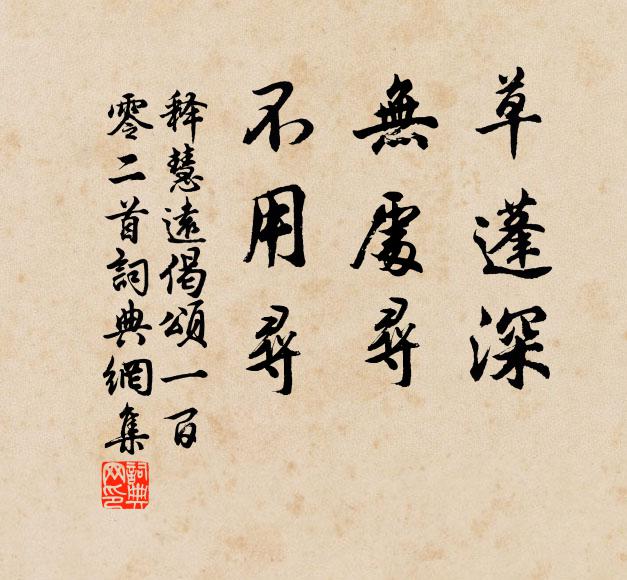 草蓬深
無處尋
不用尋
释慧遠偈頌一百
零二首詞典網集
詞典
网印